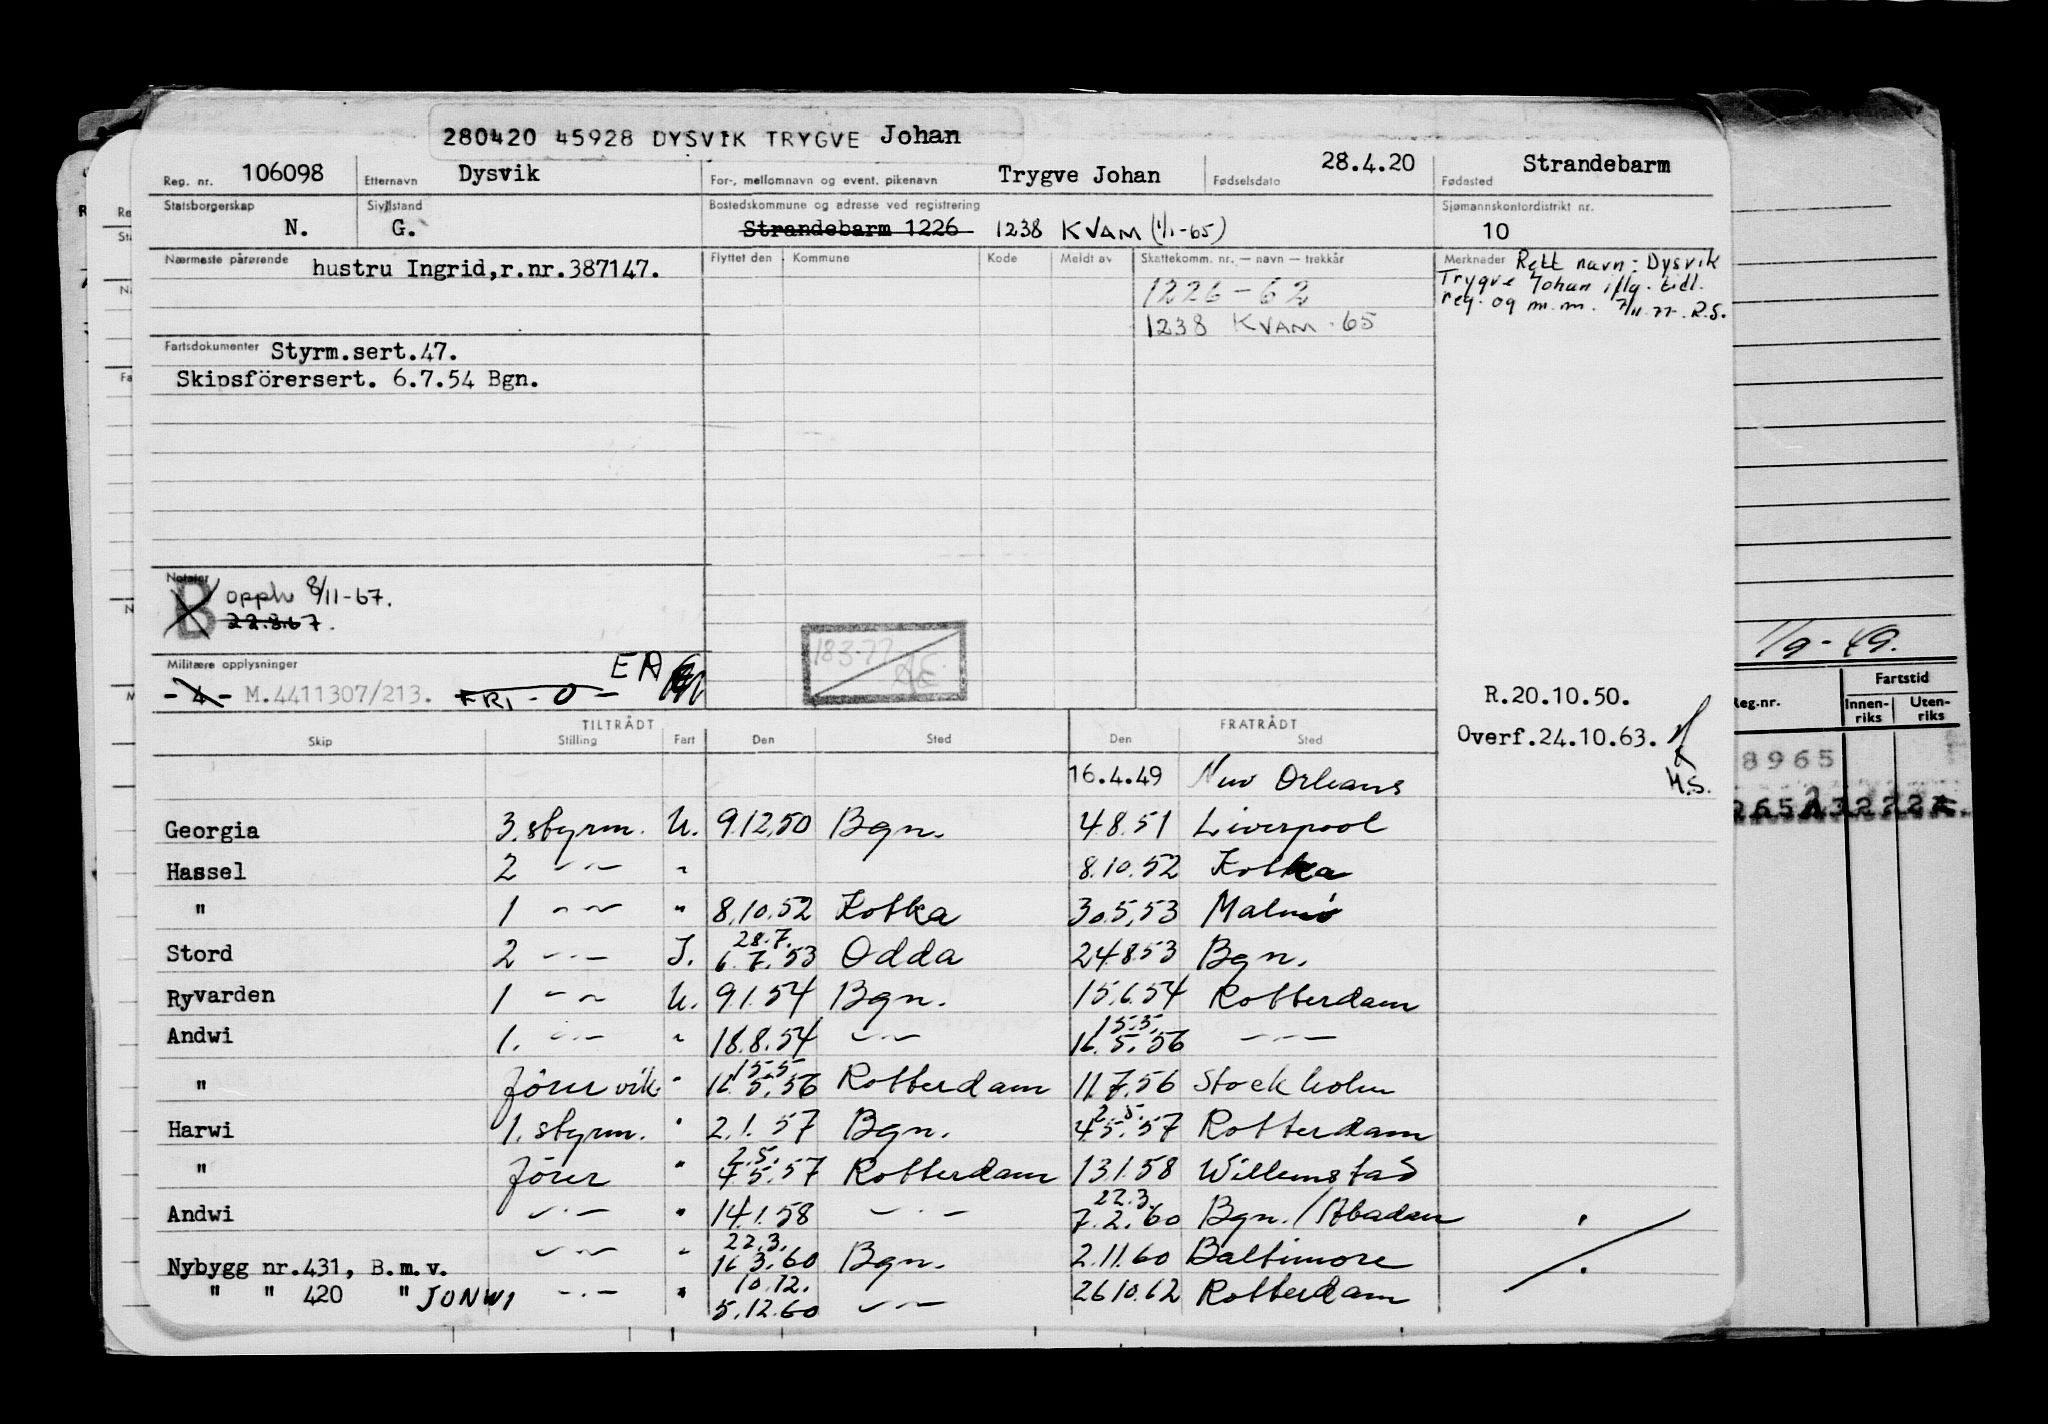 280420 45928 DYSVIK TRYGVE Johan
Reg. nr. 106098 Etternavn Dysvik For-, mellomnavn og event. pikenavn Trygve Johan Fødselsdato 28.4.20 Fødested Strandebarm
Statsborgerskap Sivilstand Bostedskommune og adresse ved registrering Sjømannskontordistrikt nr.
N. G. Strandebarm 1226 1238 KVAM (1/1-65) 10
Nærmeste pårørende hustru Ingrid,r.nr.387147. Flyttet den Kommune Kode Meldt av Skattekomm. nr. — navn — trekkår Merknader Rett navn: Dysvik
Trygve Johan iflg. tidl.
reg. og m.m. 7/11.77. R.S.
1226-62
1238 KVAM-65
Fartsdokumenter Styrm.sert.47.
Skipsförersert. 6.7.54 Bgn.
Notater
B opph 8/11-67.
22.3.67.
183-77
Militære opplysninger
-4- M.4411307/213. FRI-0-
R.20.10.50.
Overf.24.10.63.
H.S.
TILTRÅDT FRATRÅDT
Skip Stilling Fart Den Sted Den Sted
16.4.49 New Orleans
Georgia 3. styrm. U. 9.12.50 Bgn. 4.8.51 Liverpool
Hassel 2 -"- " 8.10.52 Kotka
" 1 -"- " 8.10.52 Kotka 30.5.53 Malmö
Stord 2 -"- I. 28.7. 6.7.53 Odda 24.8.53 Bgn.
Ryvarden 1 -"- U. 9.1.54 Bgn. 15.6.54 Rotterdam
Andwi 1. -"- " 18.8.54 -"- 15.5. 16.5.56 -"-
" förer vik. " 15.5 16.5.56 Rotterdam 11.7.56 Stockholm
Harwi 1. styrm. " 2.1.57 Bgn. 2.5. 4.5.57 Rotterdam
" förer " 2.5. 4.5.57 Rotterdam 13.1.58 Willemstad
Andwi -"- " 14.1.58 -"- 22.3. 7.2.60 Bgn./Abadan
Nybygg nr.431, B.m.v. -"- " 22.3. 16.3.60 Bgn. 2.11.60 Baltimore
" " 420 " JONWI -"- " 10.12. 5.12.60 -"- 26.10.62 Rotterdam
1/9-49.
Reg.nr. Fartstid
Innen-riks Uten-riks
8965